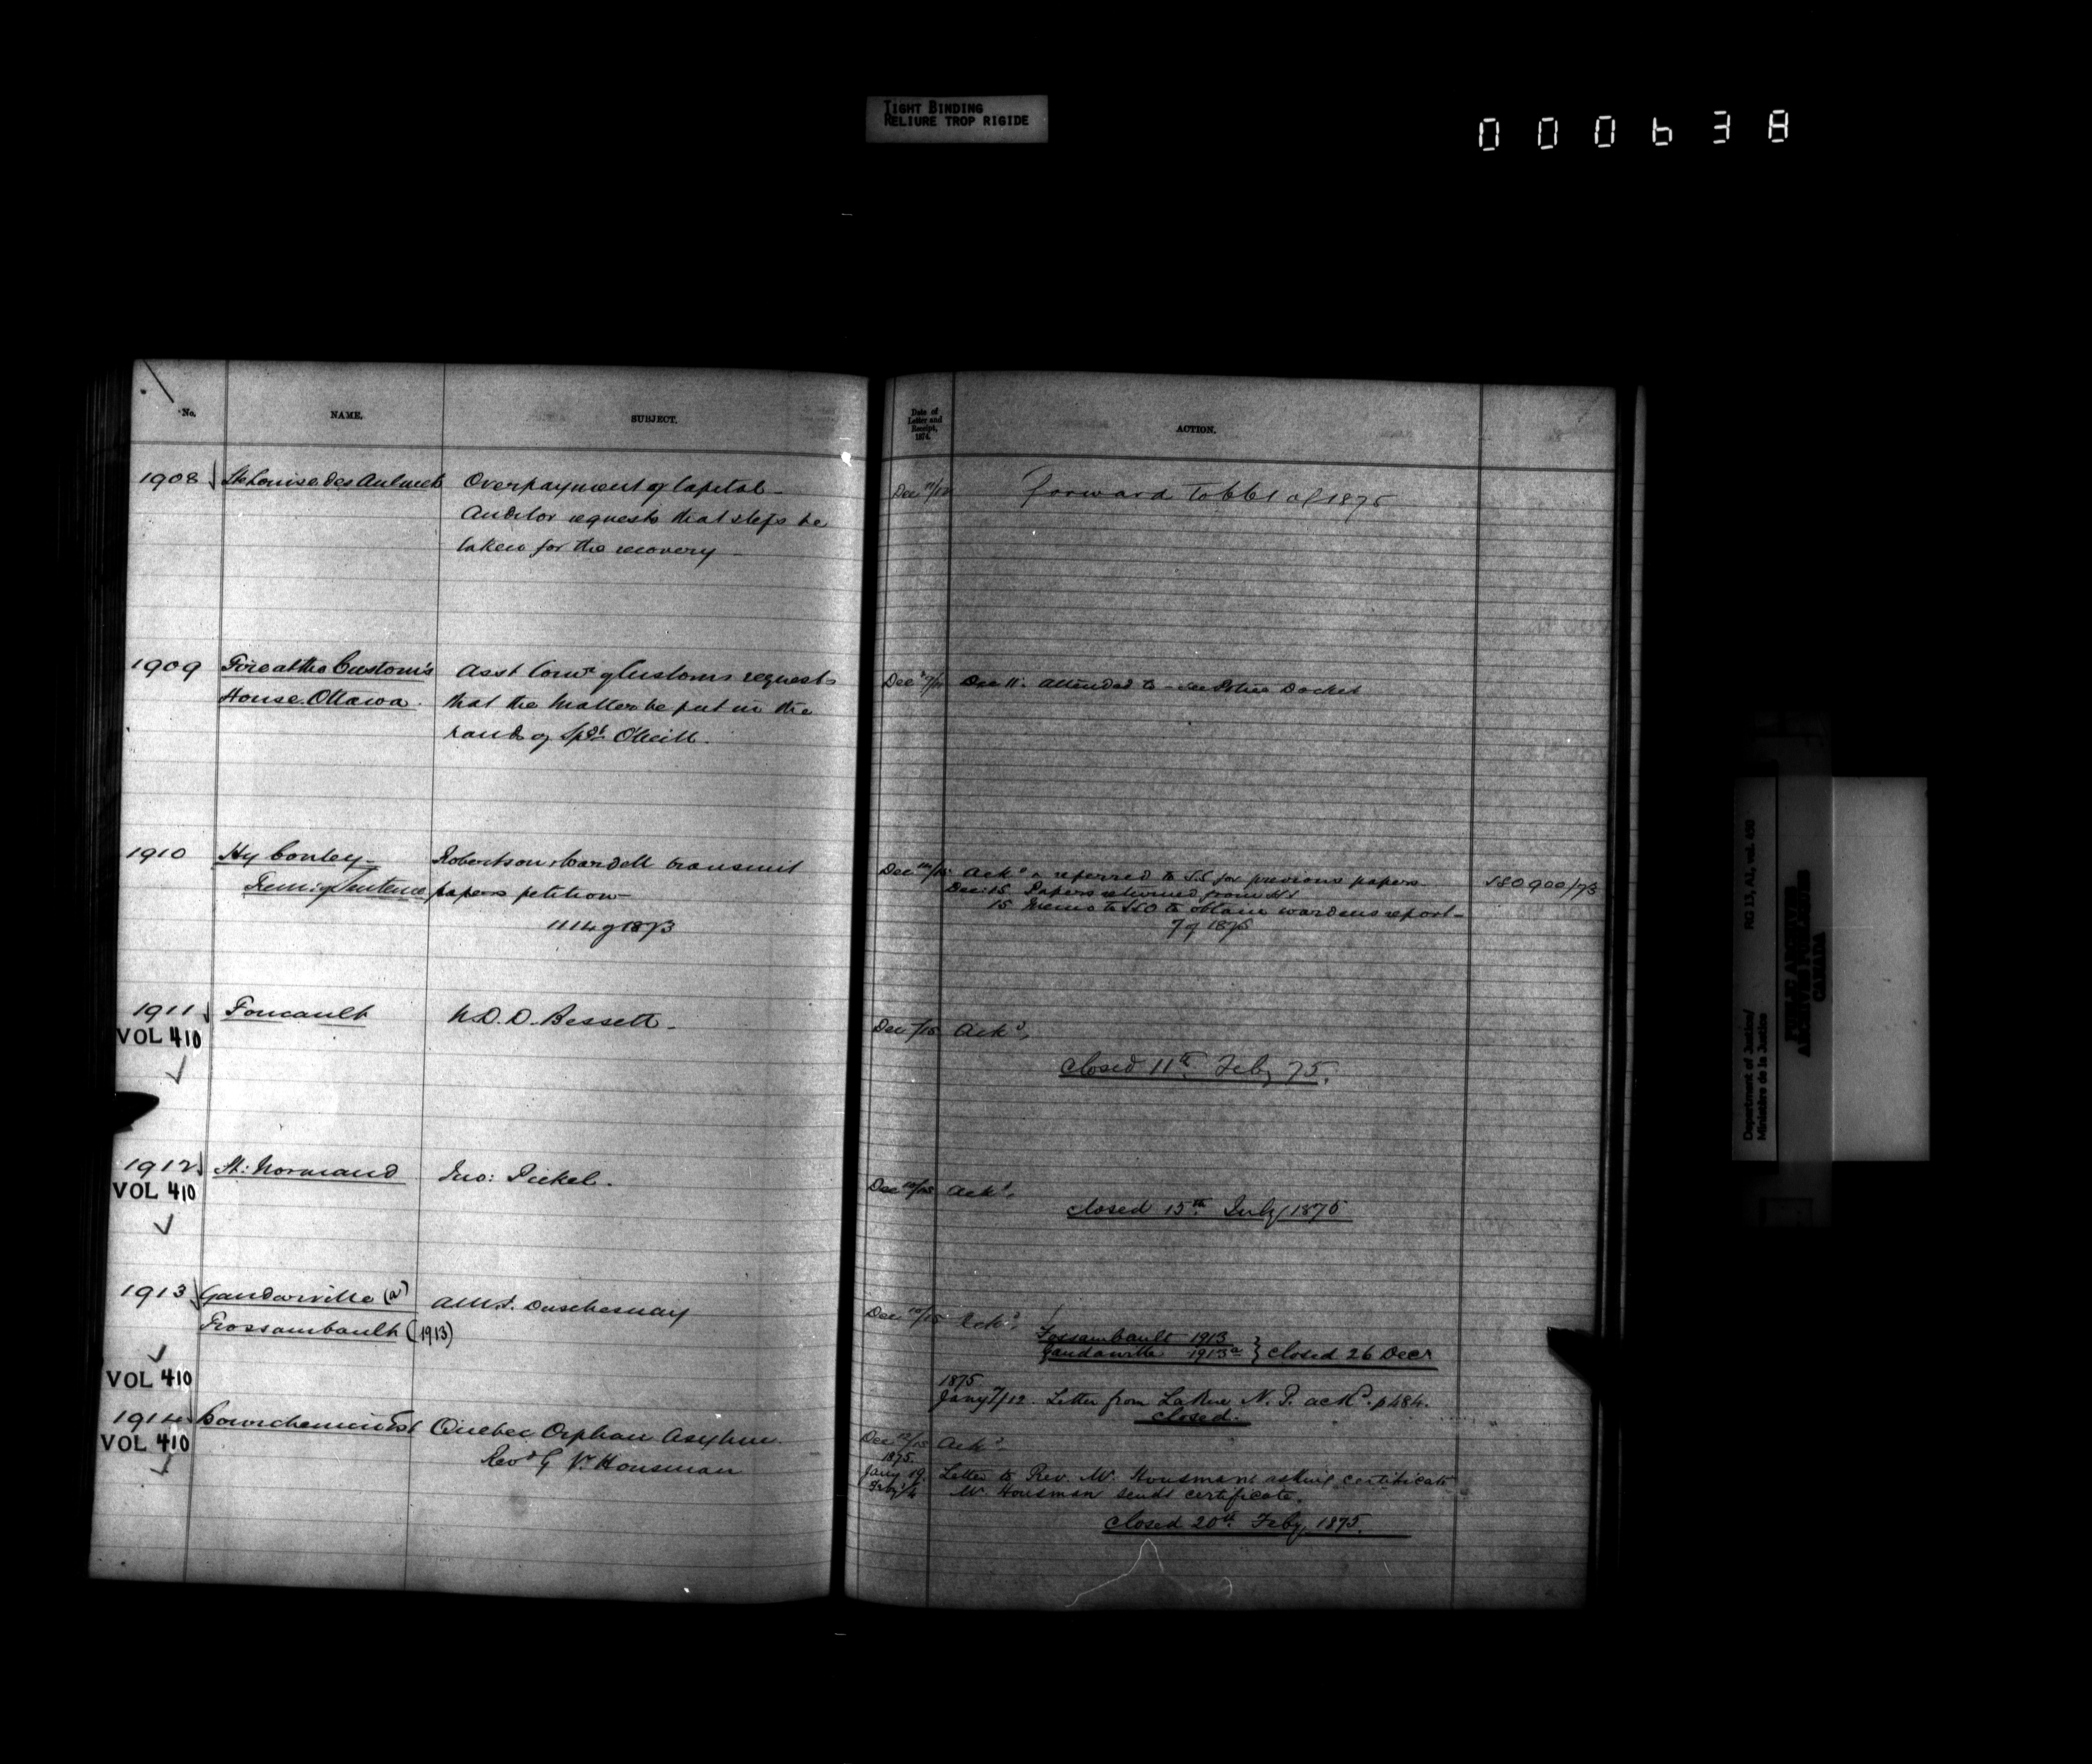 TIGHT BINDING
RELIURE TROP RIGIDE
000638
No.
NAME.
SUBJECT.
1908
Ste Louise des Aulnets
Overpayment of Capital -
Auditor requests that steps be
taken for the recovery -
1909
Fire at the Custom's
House. Ottawa.
Asst Comr of Customs requests
that the matter be put in the
hands of Supdt O'Neill.
1910
Hy Conley -
Remn of Sentence
Robertson & Cardell transmit
papers petition
1114 of 1873
1911
VOL 410
Foucault
N. D. D. Bessett -
1912
VOL 410
St: Normand
Jno: Pickel.
1913
Gaudarville (a)
Frossambault (1913)
VOL 410
Duschesnay
1914
VOL 410
Bourchemin Est
Quebec Orphan Asylum
Revd G V. Housman
Date of
Letter and
Receipt,
1874.
ACTION.
Dec
forward to 661 of 1875
Dec
Dec 11. attended to - see Police Docket
Dec
Ackd & referred to SS for previous papers
Dec: 15. Papers returned from SS
15 Memo to to obtain wardens report -
7 of 1875
900/73
Dec 7/15
Ackd,
Closed 11th Feby 75.
Dec 10/15
Ackd,
closed 15th July 1875
Dec 10/15
Ackd,
Fossambault 1913
Gaudarville 1913a } closed 26 Decr
1875
Jany 7/12. Letter from LaRue N. P. ackd. p 484.
Closed.
Dec 12/15
Ackd
1875.
Jany 19.
Letter to Rev. Mr. Housman asking certificate
Feby 4
Mr. Housman sends certificate.
Closed 20th Feby 1875.
RG 13, A1, vol. 450
Department of Justice/
Ministère de la Justice
PUBLIC ARCHIVES
ARCHIVES PUBLIQUES
CANADA